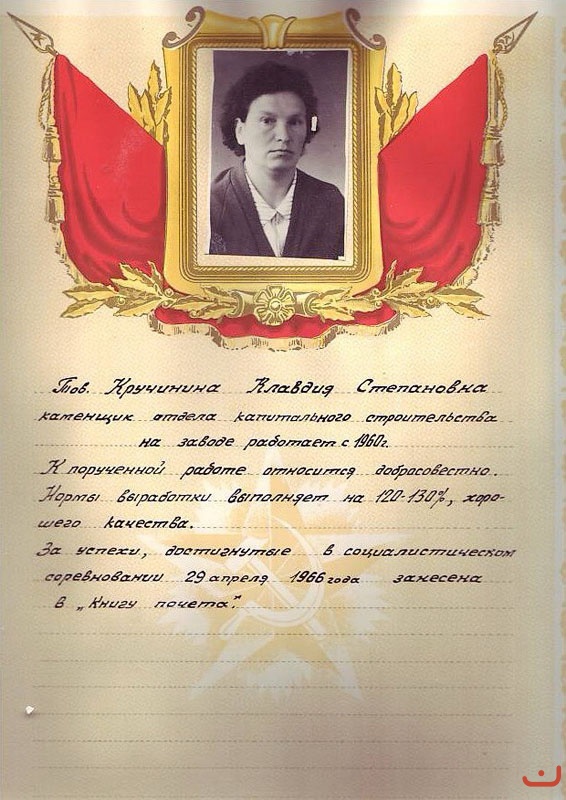 Тов. Кручинина Клавдия Степановна
каменщик отдела капитального строительства
на заводе работает с 1960г.
К порученной работе относится добросовестно.
Нормы выработки выполняет на 120-130%, хоро-
шего качества.
За успехи, достигнутые в социалистическом
соревновании 29 апреля 1966 года занесена
в „Книгу почета".